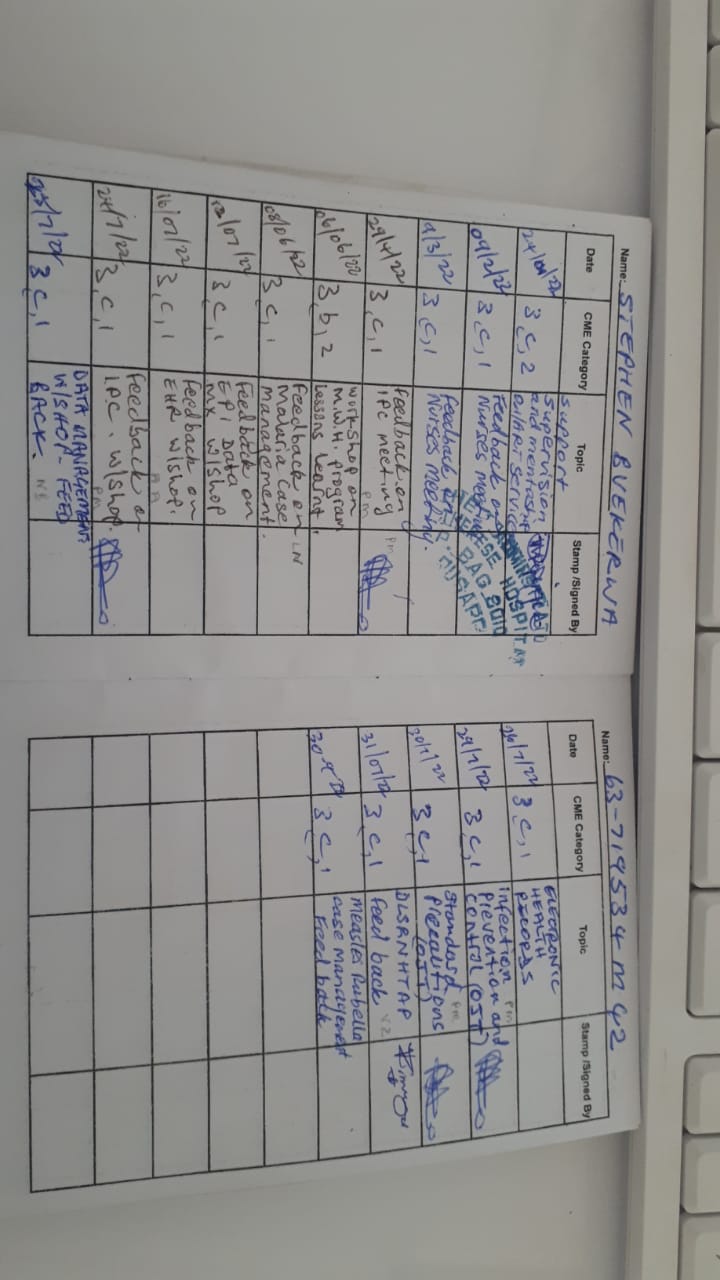 Name: STEPHEN BVEKERWA
Date CME Category Topic Stamp /Signed By
3 c, 2 Support
Supervision
and mentoring
09/2/22 3 c, 1 Feedback on
Nurses meeting
9/3/22 3 c, 1 feedback on
Nurses meeting.
HOSPITAL
BAG 8010
29/4/22 3, c, 1 feedback on
IPC meeting pm
06/06/22 3, b, 2 workshop on
M.W.H program
lessons learnt.
08/06/22 3 c, 1 Feedback on LN
Malaria case
Management.
3 c, 1 Feedback on
EPI Data
MX W/Shop
16/07/22 3, c, 1 feedback on
EHR W/Shop.
24/7/22 3, c, 1 feedback of
I.PC. W/Shop. pm
3 c, 1 DATA MANAGEMENT
W/SHOP - FEED
BACK.
Name: 63-719534 M 42
Date CME Category Topic Stamp /Signed By
26/7/22 3 c, 1 ELECTRONIC
HEALTH
RECORDS
29/7/22 3 c, 1 infection pm
Prevention and
control (OJT)
3 c, 1 Standard pm
Precautions
(OJT)
31/07/22 3 c, 1 DLSRNHTAP
feed back
3 c, 1 Measles Rubella
case management
Feed back